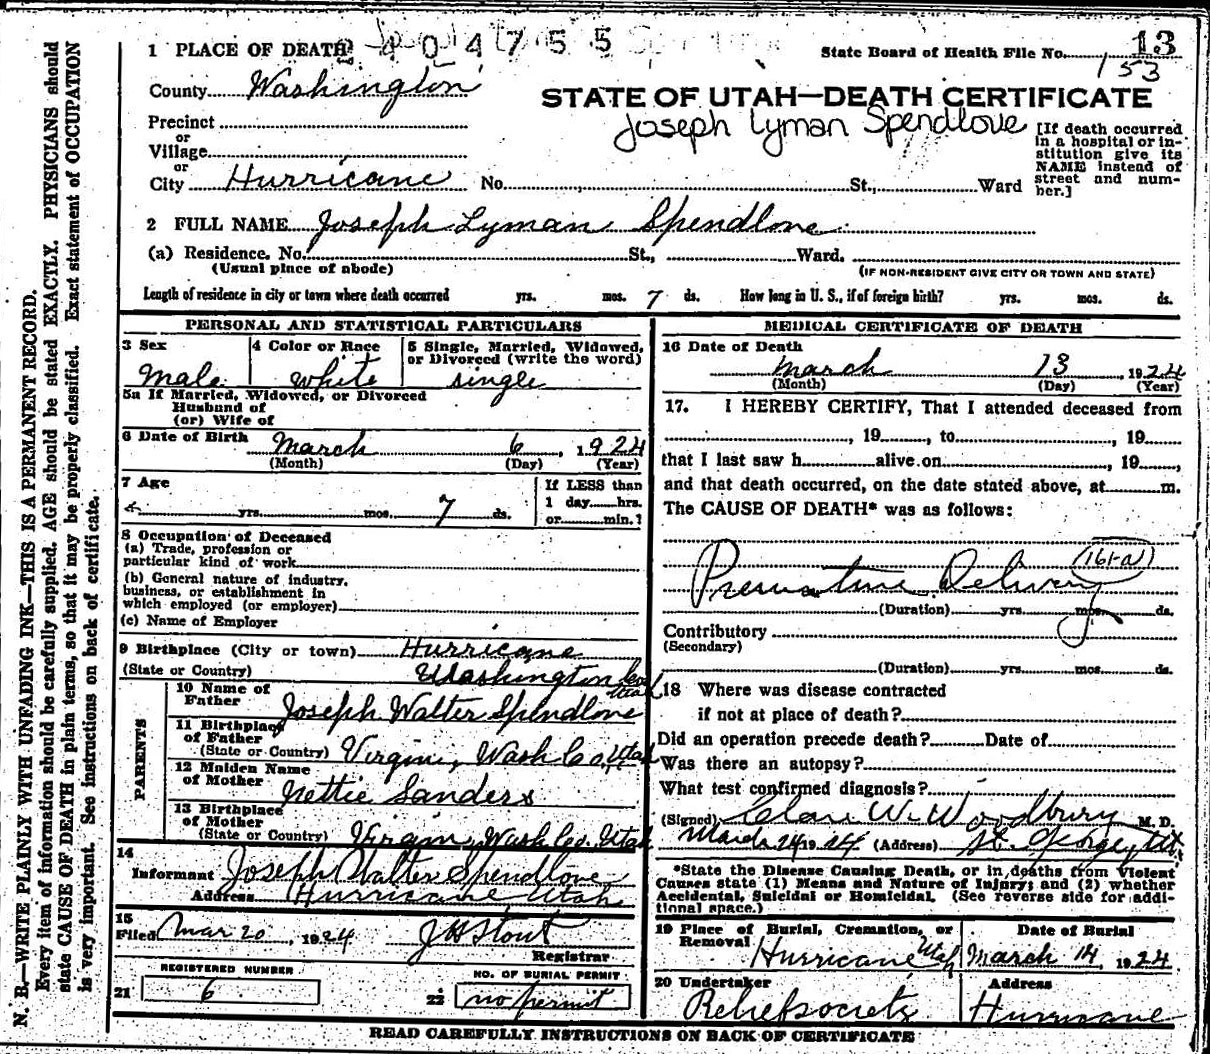 N. B.—WRITE PLAINLY WITH UNFADING INK—THIS IS A PERMANENT RECORD.
Every item of information should be carefully supplied. AGE should be stated EXACTLY. PHYSICIANS should
state CAUSE OF DEATH in plain terms, so that it may be properly classified. Exact statement of OCCUPATION
is very important. See instructions on back of certificate.
2404755
1 PLACE OF DEATH
State Board of Health File No. 13
153
County Washington
STATE OF UTAH—DEATH CERTIFICATE
Joseph Lyman Spendlove
Precinct
or
Village
or
City Hurricane No. St., Ward
[If death occurred
in a hospital or in-
stitution give its
NAME instead of
street and num-
ber.]
2 FULL NAME Joseph Lyman Spendlove
(a) Residence. No. St., Ward.
(Usual place of abode)
(IF NON-RESIDENT GIVE CITY OR TOWN AND STATE)
Length of residence in city or town where death occurred yrs. mos. 7 ds. How long in U. S., if of foreign birth? yrs. mos. ds.
PERSONAL AND STATISTICAL PARTICULARS
3 Sex
Male
4 Color or Race
white
5 Single, Married, Widowed,
or Divorced (write the word)
single
5a If Married, Widowed, or Divorced
Husband of
(or) Wife of
6 Date of Birth March 6, 1924
(Month) (Day) (Year)
7 Age
yrs. mos. 7 ds.
If LESS than
1 day hrs.
or min.?
8 Occupation of Deceased
(a) Trade, profession or
particular kind of work
(b) General nature of industry,
business, or establishment in
which employed (or employer)
(c) Name of Employer
9 Birthplace (City or town) Hurricane
(State or Country) Washington Co. Utah
PARENTS
10 Name of
Father Joseph Walter Spendlove
11 Birthplace
of Father
(State or Country) Virgin, Wash Co, Utah
12 Maiden Name
of Mother Nettie Sanders
13 Birthplace
of Mother
(State or Country) Virgin, Wash Co. Utah
14
Informant Joseph Walter Spendlove
Address Hurricane, Utah
15
Filed Mar 20, 1924 J H Stout
Registrar
REGISTERED NUMBER
21 6
NO. OF BURIAL PERMIT
22 no permit
MEDICAL CERTIFICATE OF DEATH
16 Date of Death
March 13, 1924
(Month) (Day) (Year)
17. I HEREBY CERTIFY, That I attended deceased from
, 19, to, 19
that I last saw h alive on, 19,
and that death occurred, on the date stated above, at m.
The CAUSE OF DEATH* was as follows:
(161-a)
Premature Delivery
(Duration) yrs. mos. ds.
Contributory
(Secondary)
(Duration) yrs. mos. ds.
18 Where was disease contracted
if not at place of death?
Did an operation precede death? Date of
Was there an autopsy?
What test confirmed diagnosis?
(Signed) Clare W. Woodbury M. D.
March 24 1924 (Address) St. George, Ut.
*State the Disease Causing Death, or in deaths from Violent
Causes state (1) Means and Nature of Injury; and (2) whether
Accidental, Suicidal or Homicidal. (See reverse side for addi-
tional space.)
19 Place of Burial, Cremation, or
Removal Hurricane Utah
Date of Burial
March 14, 1924
20 Undertaker
Relief society
Address
Hurricane
READ CAREFULLY INSTRUCTIONS ON BACK OF CERTIFICATE